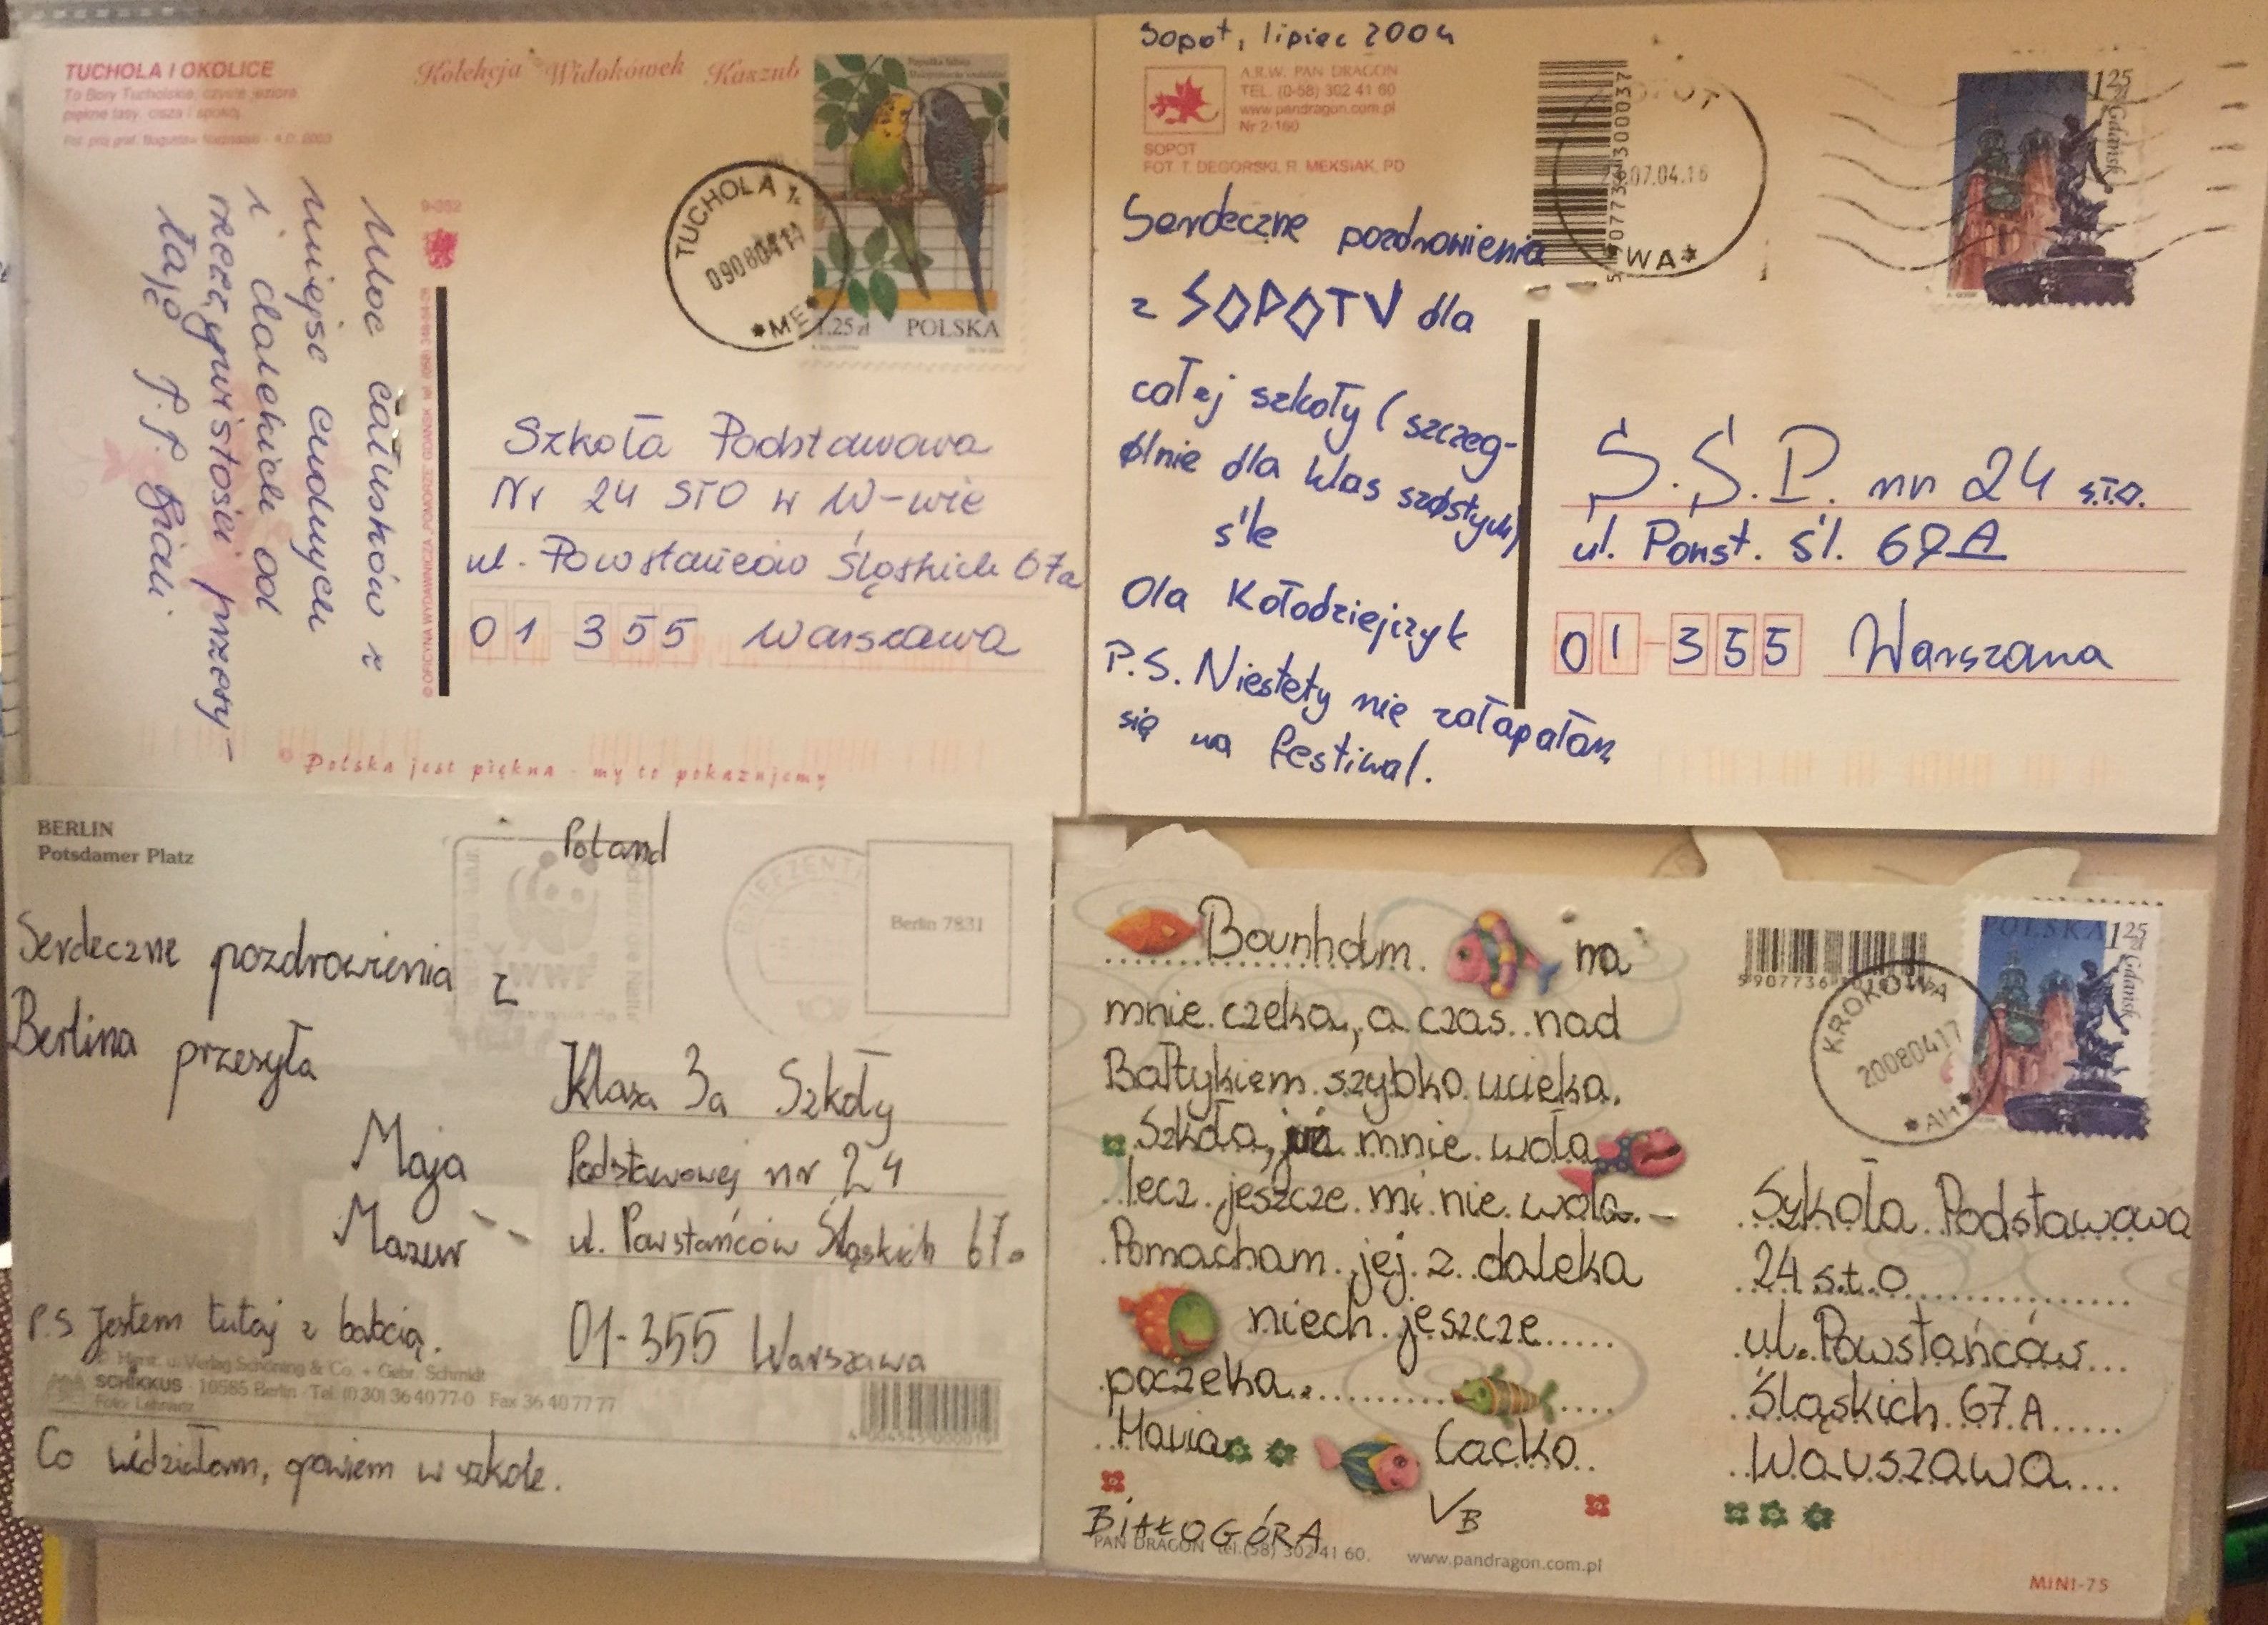 TUCHOLA I OKOLICE
To Bory Tucholskie, czyste jeziora
piękne lasy, cisza i spokój
Kolekcja Widokówek Kaszub
TUCHOLA 1
090804
*ME*
1.25 zł POLSKA
Moc całusków z
miejsc cudnych
i dalekich od
rzeczywistości przesy-
łają
P.P.
9-082
© OFICYNA WYDAWNICZA "POMORZE" GDAŃSK
Szkoła Podstawowa
Nr 24 STO w W-wie
ul. Powstańców Śląskich 67a
01 355 Warszawa
© Polska jest piękna - my to pokazujemy
Sopot, lipiec 2004
A.R.W. PAN DRAGON
TEL. (0-58) 302 41 60
www.pandragon.com.pl
Nr 2/160
SOPOT
FOT. T. DEGÓRSKI, R. MEKSIAK, PD
07.04.16
*WA*
POLSKA 1 25 zł
Gdańsk
Serdeczne pozdrowienia
z SOPOTU dla
całej szkoły (szczeg-
ólnie dla klas szóstych)
śle
Ola Kołodziejczyk
P.S. Niestety nie załapałam
się na festiwal.
S.S.P. nr 24 s.t.o.
ul. Powst. Śl. 67A
01-355 Warszawa
BERLIN
Potsdamer Platz
Poland
BRIEFZENTR
Berlin 7831
WWF
Serdeczne pozdrowienia z
Berlina przesyła
Maja
Mazur
P.S Jestem tutaj z babcią.
Co widziałam, opowiem w szkole.
Klasa 3a Szkoły
Podstawowej nr 24
ul. Powstańców Śląskich 67a
01-355 Warszawa
Verlag Schöning & Co. + Gebr. Schmidt
SCHIKKUS · 10585 Berlin · Tel. (030) 36 40 77-0 Fax 36 40 77 77
Bornholm na
mnie czeka, a czas nad
Bałtykiem szybko ucieka.
Szkoła, już mnie woła
lecz jeszcze mi nie wola.-
Pomacham jej z daleka
niech jeszcze
poczeka.
Maria Cacko
VB
BIAŁOGÓRA
PAN DRAGON tel. (58) 302 41 60. www.pandragon.com.pl
MINI-75
KROKOWA
20080417
*AH*
POLSKA 1 25 zł
Gdańsk
Szkoła Podstawowa
24 s.t.o
ul. Powstańców
Śląskich 67A
Warszawa